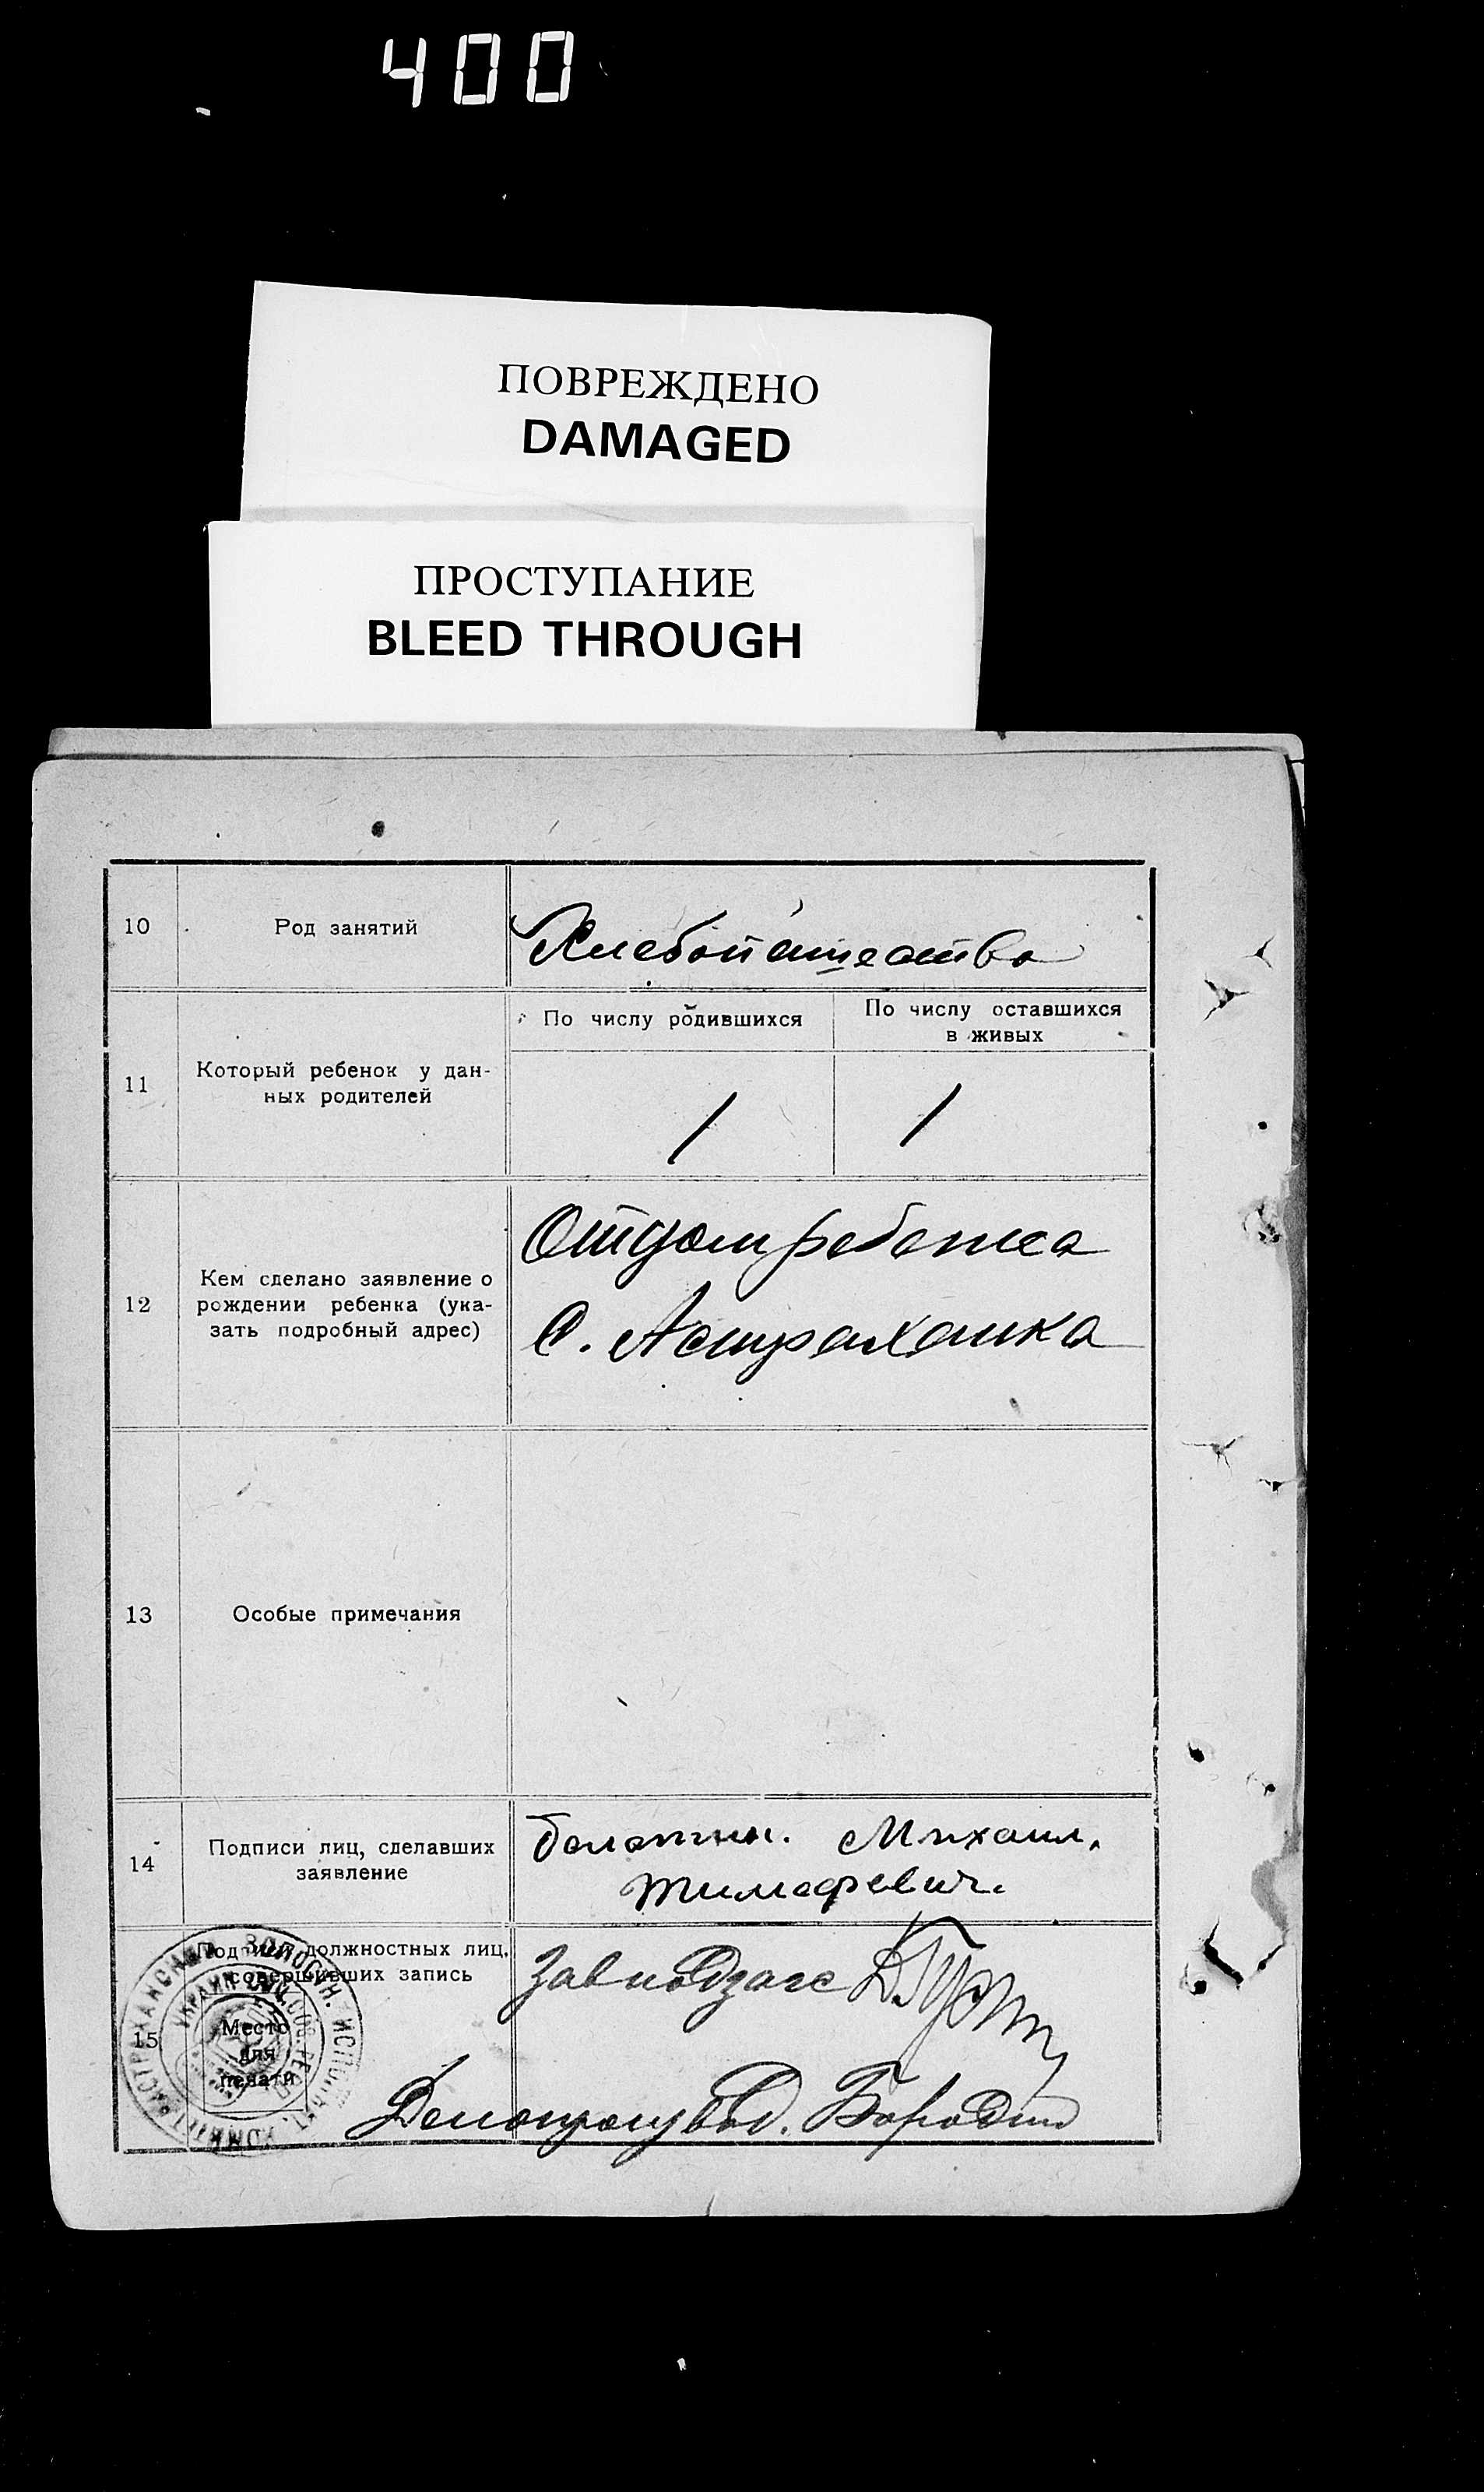 400
ПОВРЕЖДЕНО
DAMAGED
ПРОСТУПАНИЕ
BLEED THROUGH
10 Род занятий Хлебопашество
11 Который ребенок у дан-
ных родителей
По числу родившихся
По числу оставшихся
в живых
1 1
12 Кем сделано заявление о
рождении ребенка (ука-
зать подробный адрес)
Отцом ребенка
С. Астраханка
13 Особые примечания
14 Подписи лиц, сделавших
заявление
Болотин. Михаил.
Тимофевич.
15 Подписи должностных лиц,
совершивших запись
Место
для
печати
АСТРАХАНСКИЙ ВОЛОСН. ИСПОЛНИТ. КОМИТ
Завподзагс
Делопроизвод. Бородин